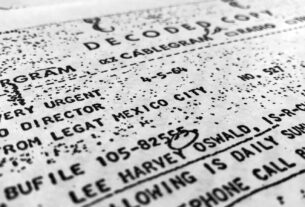 DECODED COPY
CABLEGRAM
GRAM 4-5-64 NO.
VERY URGENT
DIRECTOR
FROM LEGAT MEXICO CITY
BUFILE 105-82555
LEE HARVEY OSWALD, IS-R
OWING IS DAILY
PHONE CALL